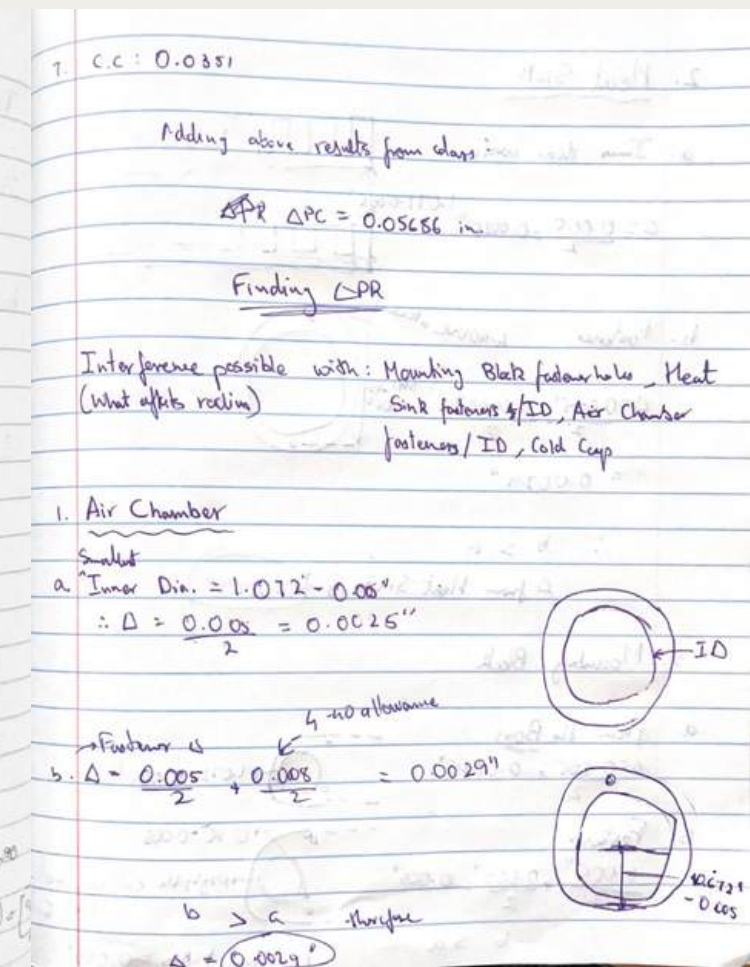 7. C.C : 0.0351
Adding above results from class :
ΔPC = 0.05686 in
Finding ΔPR
Interference possible with : Mounting Block fastener holes, Heat
(What affects radius) Sink fasteners /ID, Air Chamber
fasteners / ID, Cold Cap
1. Air Chamber
Smallest
a. Inner Dia. = 1.072 - 0.005"
∴ Δ = 0.005/2 = 0.0025"
ID
4-40 allowance
→ Fastener
b. Δ = 0.005/2 + 0.008/2 = 0.0029"
- 0.005
b > a therefore
Δ = 0.0029"